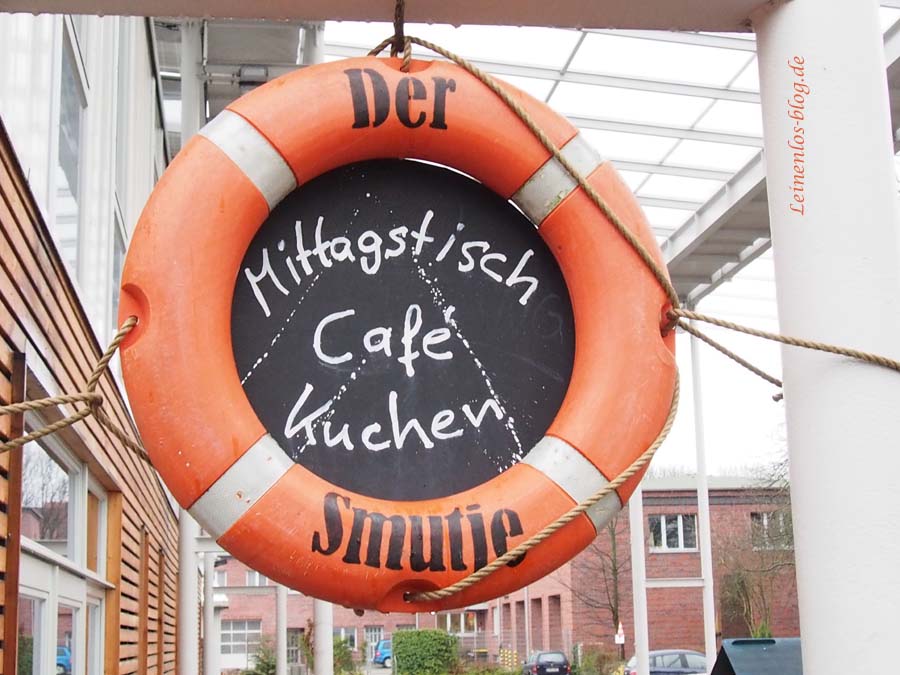 Der
Mittagstisch
Café
Kuchen
Smutje
Leinenlos-blog.de